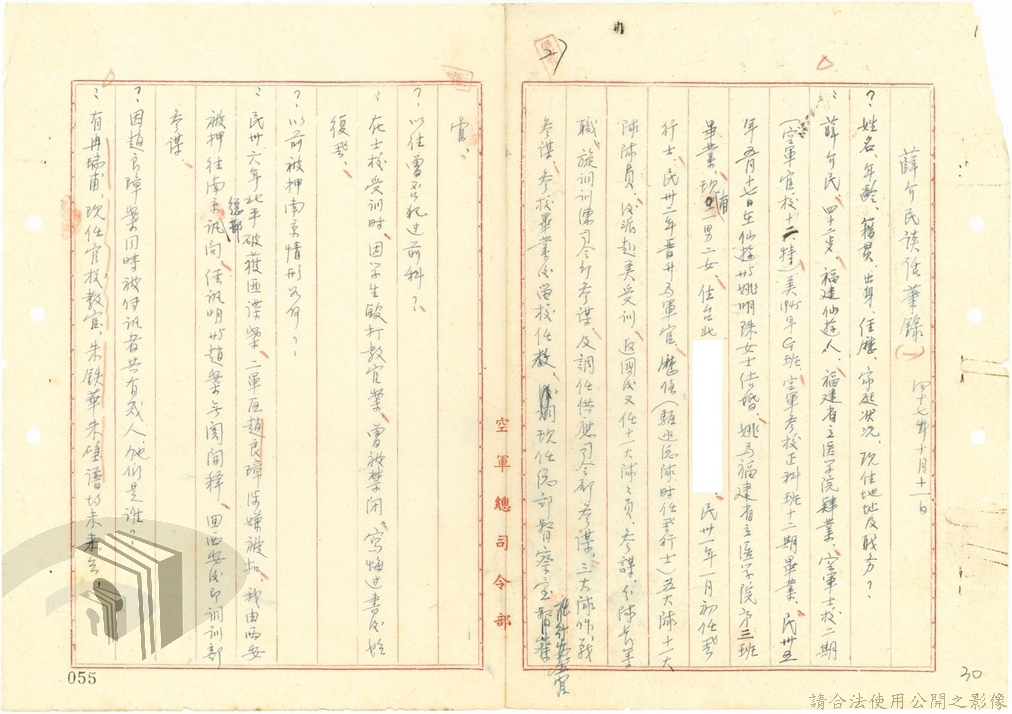 薛介民談話筆錄(一)
四十七年十月十一日
?:姓名、年齡、籍貫、出身、經歷、家庭狀況、現住地址及職務?
:薛介民、四十二歲、福建仙遊人、福建省立医学院肄業、空軍士校二期
(空軍官校十二特)美1945年G班、空軍参校正科班十二期畢業、民卅五
年五月十七日在仙遊与姚明珠女士结婚、姚為福建省立医学院第三班
畢業、現有一男二女、住台北
民卅一年一月初任飛
行士、民卅一年晋升為軍官、歷任(驅逐总隊時任飛行士)五大隊十一大
隊隊員、後派赴美受訓、返國後又任十一大隊隊員、参謀、分隊長等
職、旋調訓練司令部参謀、及調任供應司令部参謀、三大隊作戰
参謀、参校畢業後学校任教、調現任总部督察室督察
飛行安全官
官、
?:以往曾否犯过前科?
:在士校受訓時、因学生毆打教官案、曾被禁闭、寫悔过書後始
復飛、
?:以前被押南京情形如何?
:民卅六年北平破獲匪諜案、二軍區趙良璋涉嫌被扣、我由西安
被押往南京總部訊问、經訊明与趙案無関開釋、回西安後即調訓部
参謀、
?:因趙良璋案同時被传訊者共有幾人他们是誰?
:有冉瑞甫、現任官校教官、朱鉄華朱镇譜均未来台、
空軍總司令部
055
30
27
1
請合法使用公開之影像